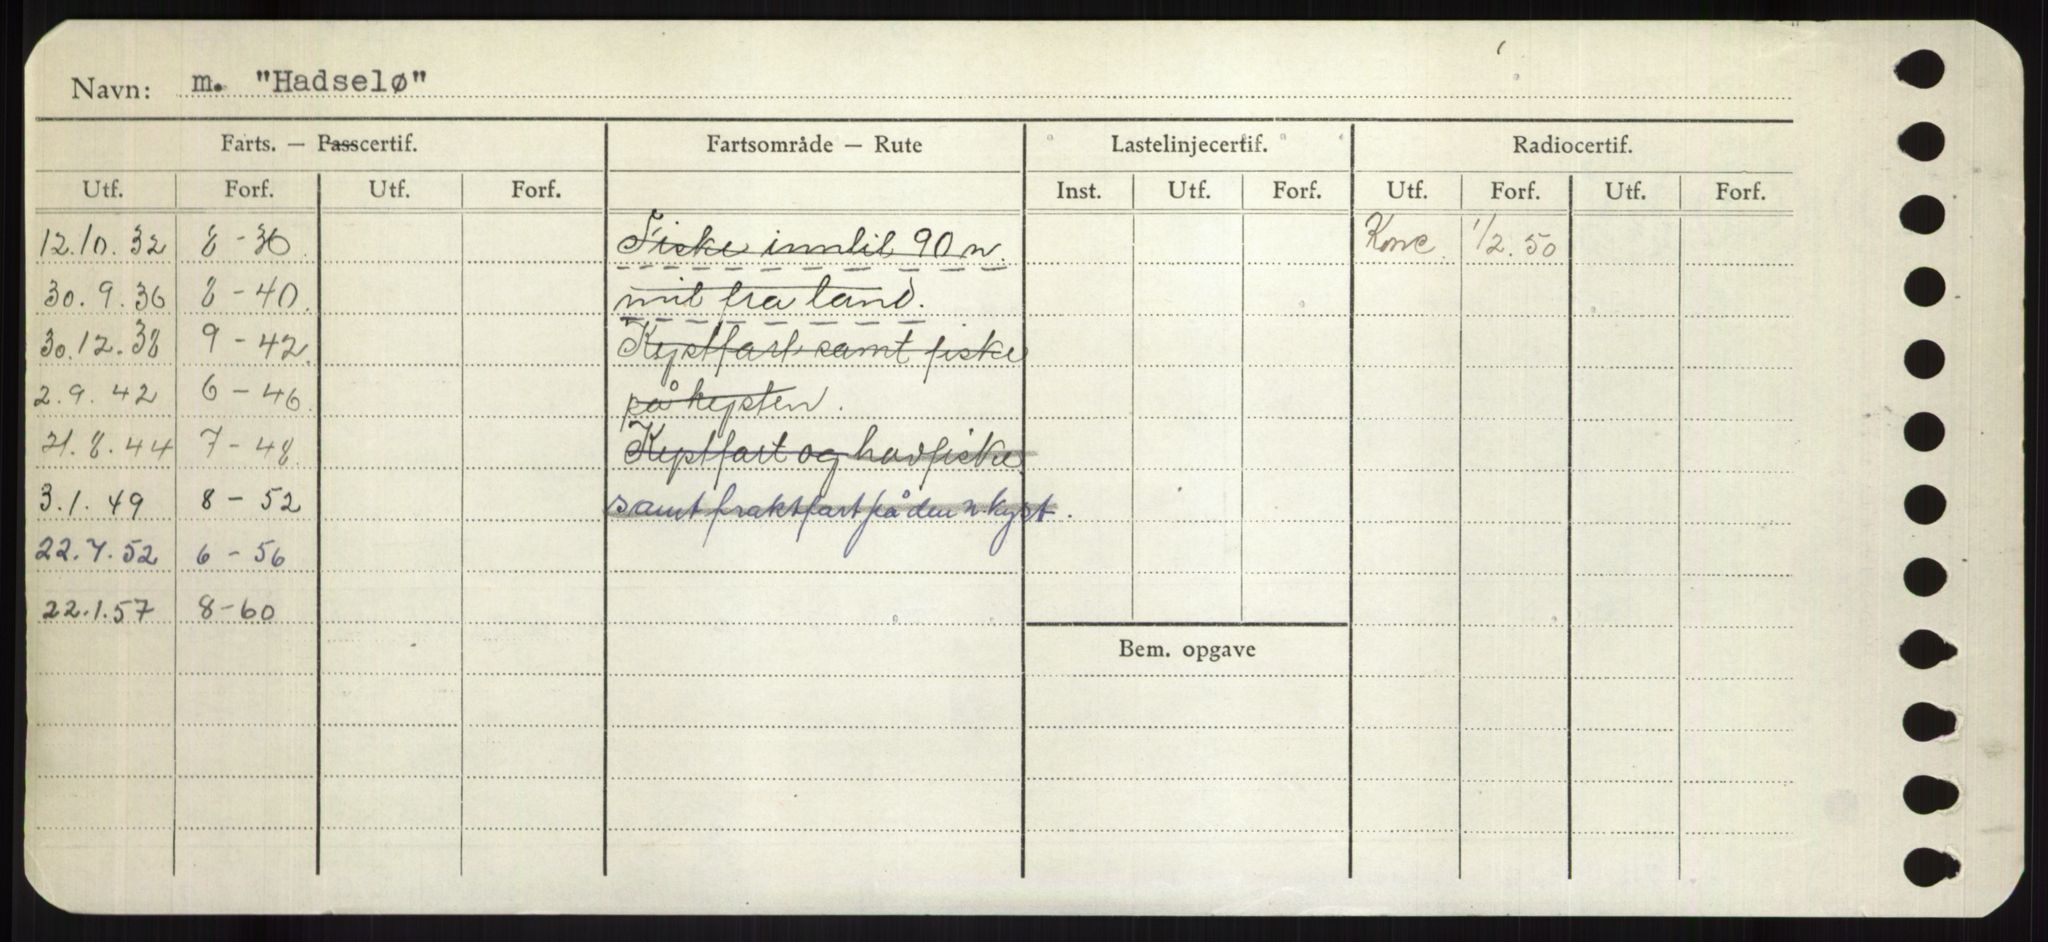 Navn: m. "Hadselø"
Farts. — Passcertif. Fartsområde — Rute Lastelinjecertif. Radiocertif.
Utf. Forf. Utf. Forf. Inst. Utf. Forf. Utf. Forf. Utf. Forf.
12.10.32 8-36. Fiske inntil 90 n. Konc. 1/2.50
30.9.36 8-40. mil fra land.
30.12.38 9-42. Kystfart samt fiske
2.9.42 6-46. på kysten.
21.8.44 7-48. Kystfart og havfiske
3.1.49 8-52 samt fraktfart på den n kyst.
22.7.52 6-56
22.1.57 8-60
Bem. opgave